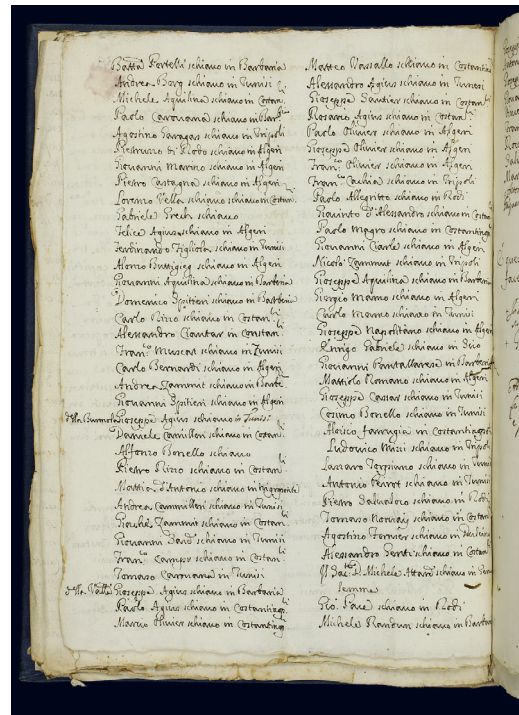 Batta Portelli schiavo in Barbaria
Andrea Borg schiavo in Tunisi
Michele Aquilina schiavo in Costan.li
Paolo Caravana schiavo in Barb.
Agostino Saragas schiavo in Tripoli
Pietruzzo di Rodo schiavo in Algeri
Giovanni Martino schiavo in Algeri
Pietro Castagna schiavo in Algeri
Lorenzo Vella schiavo in Costan.
Gabriele Grech schiavo
Felice Agius schiavo in Algeri
Ferdinando Figliola schiavo in Tunisi
Alonso Buttigieg schiavo in Algeri
Giovanni Aquilina schiavo in Barberia
Domenico Spiteri schiavo in Barberia
Carlo Rizzo schiavo in Costan.li
Alessandro Ciantar in Constan.li
Fran.co Muscat schiavo in Tunisi
Carlo Bernardi schiavo in Algeri
Andrea Zammit schiavo in Barbe.
Giovanni Spiteri schiavo in Algeri
della Burmola Gioseppe Agius schiavo in Tunisi
Daniele Camilleri schiavo in Costan.li
Alfonzo Bonello schiavo
Pietro Rizo schiavo in Costan.li
Mattia d'Antonio schiavo in
Andrea Cammilleri schiavo in Tunisi
Zammit schiavo in Costan.li
Giovanni schiavo in Tunisi
Fran.co Campis schiavo in Costan.li
Tomaso Carnana in Tunisi
della Valletta Gioseppe Agius schiavo in Barbaria
Paolo Agius schiavo in Costantinop.li
Marco Olivier schiavo in Costantinop.li
Matteo Vassallo schiavo in Costantin
Alessandro Agius schiavo in Tunisi
Gioseppe Santier schiavo in Costan.li
Rosario Agius schiavo in Costan.li
Paolo Olivier schiavo in Algeri
Gioseppe Olivier schiavo in Algeri
Fran.co Olivier schiavo in Algeri
Fran.co Cachia schiavo in Tripoli
Paolo Allegritto schiavo in Rodi
Giacinto d'Alessandro schiavo in Costan
Paolo Magro schiavo in Costantinop
Giovanni Ciarle schiavo in Algeri
Nicolò Zammut schiavo in Tripoli
Gioseppe Aquilina schiavo in Barbaria
Giorgio Mamo schiavo in Algeri
Carlo Mamo schiavo in Tunisi
Gioseppe Napolitano schiavo in Algeri
Enrigo Gabriele schiavo in Scio
Giovanni Pantallarese in Barberia
Mattiolo Romano schiavo in Algeri
Gioseppe Cassar schiavo in Tunisi
Cosimo Bonello schiavo in Tunisi
Aloisio Farrugia in Costantinop
Ludovico Mizi schiavo in Tripoli
Lazzaro schiavo in Tunisi
Antonio schiavo in Tunisi
Pietro Salvadore schiavo in Rodi
Tomaso schiavo in Costan
Agostino Fornier schiavo in Barbaria
Alessandro Gerst schiavo in Costan
D. Michele Attardi schiavo in Geru
semme
Gio. Pace schiavo in Rodi
Michele Randun schiavo in Barbar